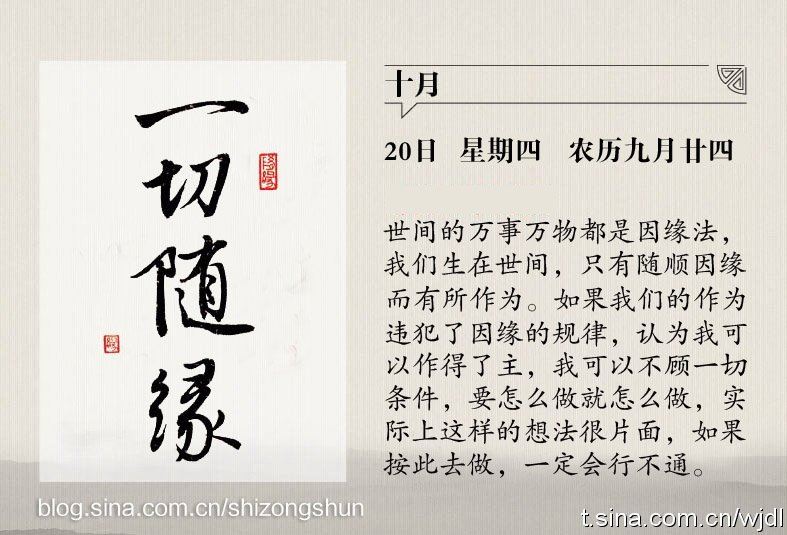 一切随缘
十月
20日 星期四 农历九月廿四
世间的万事万物都是因缘法，
我们生在世间，只有随顺因缘
而有所作为。如果我们的作为
违犯了因缘的规律，认为我可
以作得了主，我可以不顾一切
条件，要怎么做就怎么做，实
际上这样的想法很片面，如果
按此去做，一定会行不通。
blog.sina.com.cn/shizongshun
t.sina.com.cn/wjdl